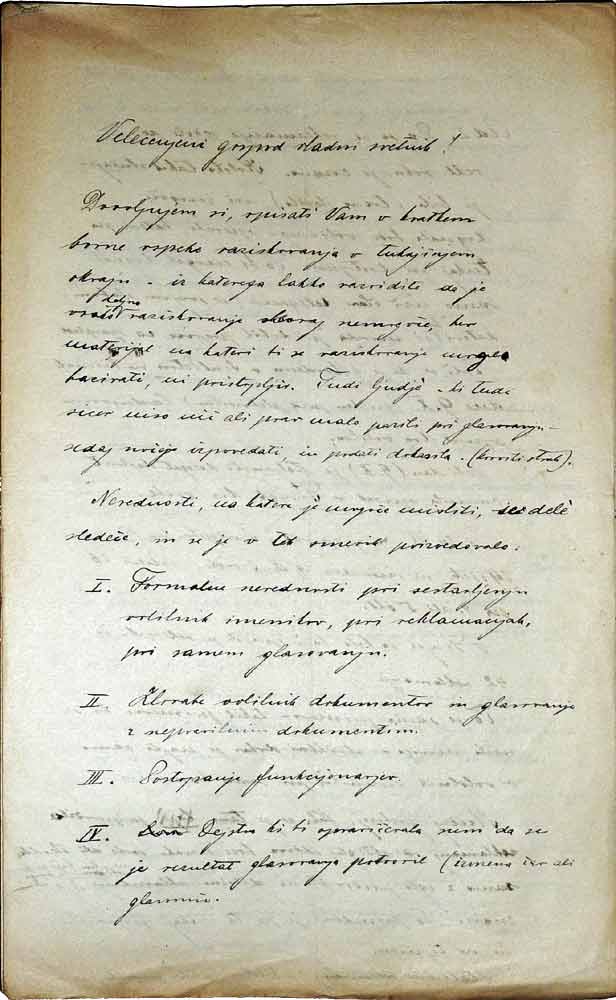 Velecenjeni gospod vladni svetnik!
Dovoljujem si, opisati Vam v kratkem
borne uspehe raziskovanja v tukajšnjem
okraju - iz katerega lahko razvidite da je
daljno
raziskovanje skoraj nemogoče, ker
materijal na kateri bi se raziskovanje moglo
bazirati, ni pristopljiv. Tudi ljudje - ki tudi
sicer niso nič ali prav malo pazili pri glasovanju -
sedaj nočejo izpovedati, in podati dokazila. (
Nerednosti, na katere je mogoče misliti, se delé
sledeče, in se je v teh smerih poizvedovalo:
I. Formalne nerednosti pri sestavljenju
volilnih imenikov, pri reklamacijah,
pri samem glasovanju.
II. Zlorabe volilnih dokumentov in glasovanje
z nepravilnimi dokumentim.
III. Postopanje funkcijonarjev.
IV. Dejstva ki bi opravičevala sum da se
je rezultat glasovanja potvoril (
glasnic.